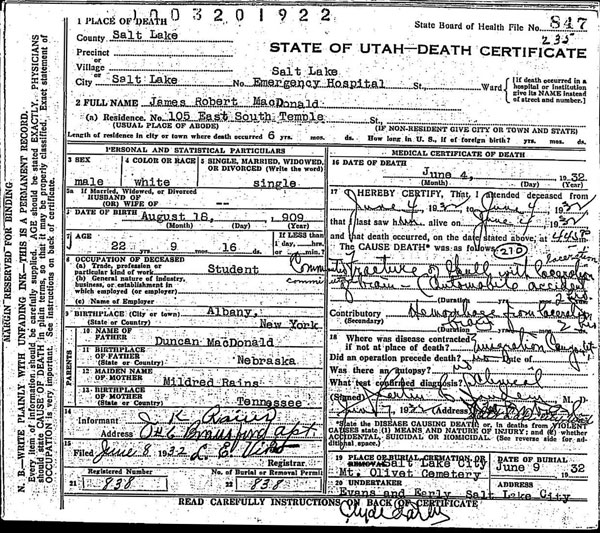 1003201922
1 PLACE OF DEATH
State Board of Health File No. 847
235
County Salt Lake
STATE OF UTAH—DEATH CERTIFICATE
Precinct or
Village or
City Salt Lake No. Salt Lake Emergency Hospital St., Ward
[If death occurred in a hospital or institution give its NAME instead of street and number.]
2 FULL NAME James Robert MacDonald
(a) Residence. No. 105 East South Temple St.,
(USUAL PLACE OF ABODE) (IF NON-RESIDENT GIVE CITY OR TOWN AND STATE)
Length of residence in city or town where death occurred 6 yrs. mos. ds. How long in U. S., if of foreign birth? yrs. mos. ds.
MARGIN RESERVED FOR BINDING
N. B.—WRITE PLAINLY WITH UNFADING INK—THIS IS A PERMANENT RECORD.
Every item of information should be carefully supplied. AGE should be stated EXACTLY. PHYSICIANS
should state CAUSE OF DEATH in plain terms, so that it may be properly classified. Exact statement of
OCCUPATION is very important. See instructions on back of certificate.
PERSONAL AND STATISTICAL PARTICULARS
3 SEX male
4 COLOR OR RACE white
5 SINGLE, MARRIED, WIDOWED, OR DIVORCED (Write the word) single
5a If Married, Widowed, or Divorced
HUSBAND OF
(OR) WIFE OF --
6 DATE OF BIRTH August 18, 1909
(Month) (Day) (Year)
7 AGE 22 9 16
If LESS than 1 day, hrs. or min.?
8 OCCUPATION OF DECEASED
(a) Trade, profession or particular kind of work Student
(b) General nature of industry, business, or establishment in which employed (or employer)
(c) Name of Employer
9 BIRTHPLACE (City or town) Albany,
(State or Country) New York
PARENTS
10 NAME OF FATHER Duncan MacDonald
11 BIRTHPLACE OF FATHER (State or Country) Nebraska
12 MAIDEN NAME OF MOTHER Mildred Rains
13 BIRTHPLACE OF MOTHER (State or Country) Tennessee
14 Informant J. K. Rains
Address Apt
15 Filed June 8, 1932
Registrar.
21 Registered Number 838
22 No. of Burial or Removal Permit 838
MEDICAL CERTIFICATE OF DEATH
16 DATE OF DEATH
June 4, 1932
(Month) (Day) (Year)
17 I HEREBY CERTIFY, That I attended deceased from
June 4, 1932, to June 4, 1932
that I last saw him alive on June 4, 1932
and that death occurred, on the date stated above, at
The CAUSE OF DEATH* was as follows: (210)
Fracture of Skull with laceration
of Brain - (Automobile accident
Contributory Hemorrhage from
(Secondary)
18 Where was disease contracted
if not at place of death?
Did an operation precede death? no Date of
Was there an autopsy? no
What test confirmed diagnosis?
(Signed) M.
June 7, 1932 (Address)
*State the DISEASE CAUSING DEATH or, in deaths from VIOLENT CAUSES state (1) MEANS AND NATURE OF INJURY; and (2) whether ACCIDENTAL, SUICIDAL or HOMICIDAL. (See reverse side for additional space.)
19 PLACE OF BURIAL, CREMATION OR REMOVAL Salt Lake City
Mt. Olivet Cemetery
DATE OF BURIAL
June 9 1932
20 UNDERTAKER ADDRESS
Evans and Early Salt Lake City
READ CAREFULLY INSTRUCTIONS ON BACK OF CERTIFICATE
Clyde Early